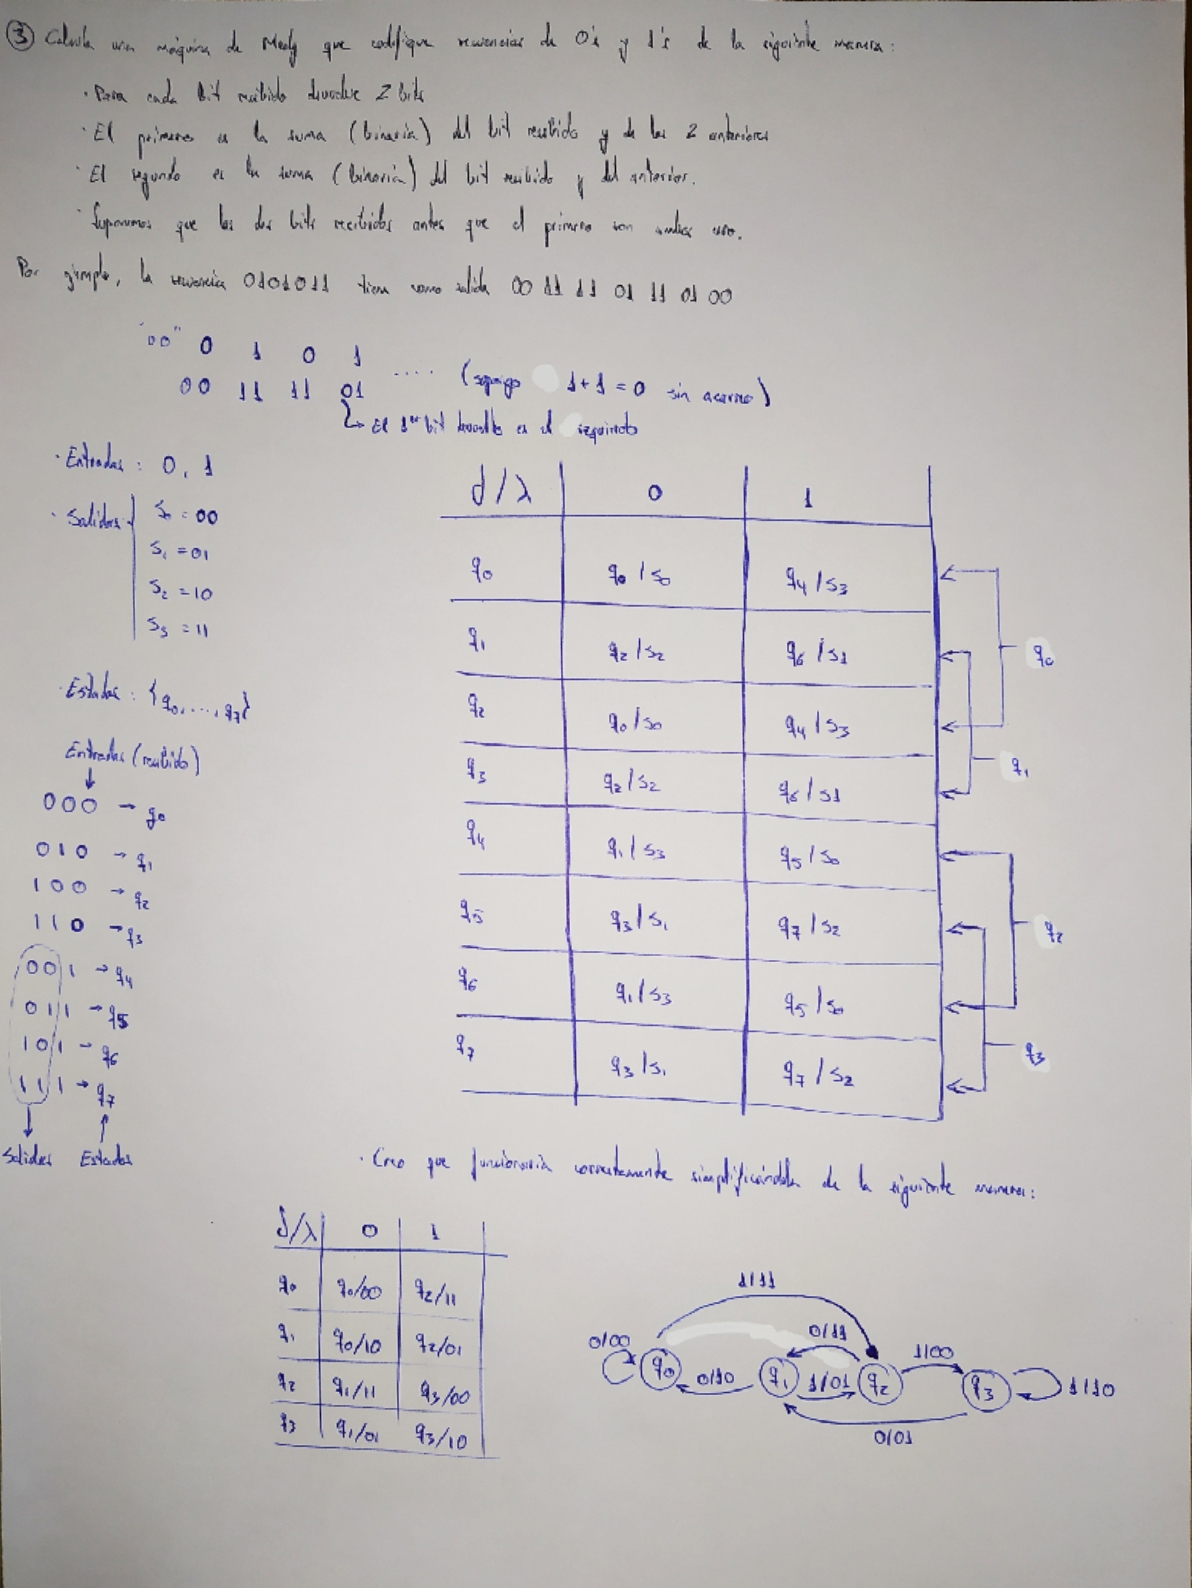 ③ Calcula una máquina de Mealy que codifique secuencias de 0's y 1's de la siguiente manera:
· Para cada bit recibido devuelve 2 bits
· El primero es la suma (binaria) del bit recibido y de los 2 anteriores
· El segundo es la suma (binaria) del bit recibido y del anterior.
· Suponemos que los dos bits recibidos antes que el primero son ambos cero.
Por ejemplo, la secuencia 0101011 tiene como salida 00 11 11 01 11 01 00
"00" 0 1 0 1
00 11 11 01 .... (supongo 1+1=0 sin acarreo)
↳ El 1er bit devuelto es el izquierdo
· Entradas: 0, 1
· Salidas
S0 = 00
S1 = 01
S2 = 10
S3 = 11
· Estados: {q0, ..., q7}
Entradas (recibido)
000 → q0
010 → q1
100 → q2
110 → q3
001 → q4
011 → q5
101 → q6
111 → q7
Salidas Estados
δ/λ 0 1
q0 q0/S0 q4/S3
q1 q2/S2 q6/S1
q2 q0/S0 q4/S3
q3 q2/S2 q6/S1
q4 q1/S3 q5/S0
q5 q3/S1 q7/S2
q6 q1/S3 q5/S0
q7 q3/S1 q7/S2
q0
q1
q2
q3
· Creo que funcionaría correctamente simplificándola de la siguiente manera:
δ/λ 0 1
q0 q0/00 q2/11
q1 q0/10 q2/01
q2 q1/11 q3/00
q3 q1/01 q3/10
1/11
0/00 q0 0/10 q1 0/11 1/01 q2 1/00 q3 1/10
0/01